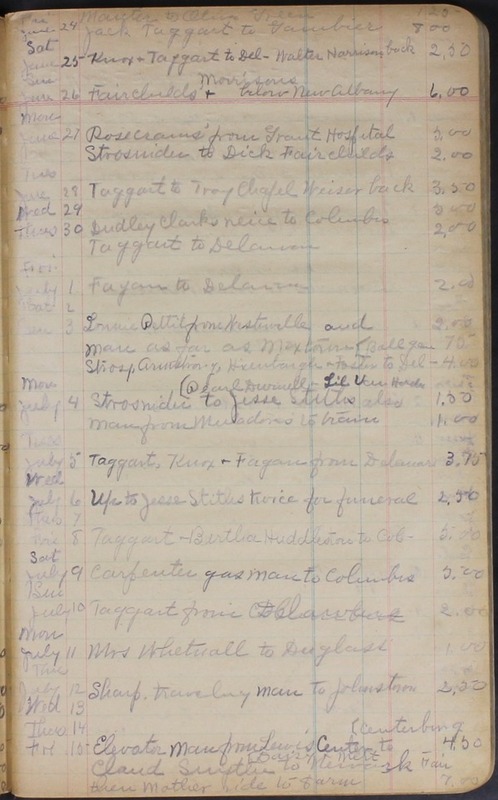 June 24 Jack Taggart to Gambier 8.00
Sat
June 25 Knox + Taggart to Del - Walter Harrison back 2.50
Sun Morrisons
June 26 Fairchilds + below New Albany 6.00
Mon
June 27 Rosecrams' from Grant Hospital 3.00
Strosnider to Dick Fairchilds 2.00
Tues
June 28 Taggart to Troy Chapel Weiser back 3.50
Wed 29 3.00
Thurs 30 Dudley Clarks neice to Columbus 2.00
Taggart to Delaware
Fri
July 1 Fagan to Delaware 2.00
Sat 2
Sun 3 Pettit from Westerville and 2.00
man as far as Maxtown (Ball ga 75
Armstrong, + Foster to Del - 4.00
Mon
July 4 Strosnider to Jesse Stiths also 1.50
man from Meadows to train 1.00
Tues
July 5 Taggart, Knox + Fagan from Delaware 3.75
Wed
July 6 Up to Jesse Stiths twice for funeral 2.50
Thurs 7
Fri 8 Taggart - Bertha Huddleston to Col-
Sat
July 9 Carpenter gas man to Columbus 3.00
Sun
July 10 Taggart from 2.00
Mon
July 11 Mrs Whetnall to Duglass 1.00
Tues
July 12 Sharp. traveling man to Johnstown 2.50
Wed 13
Thurs 14 (Centerburg
Fri 15 Elevator Man from Lewis Center to 4.50
Claud Smythe to Newark Fair
Mother ride to Farm 7.00